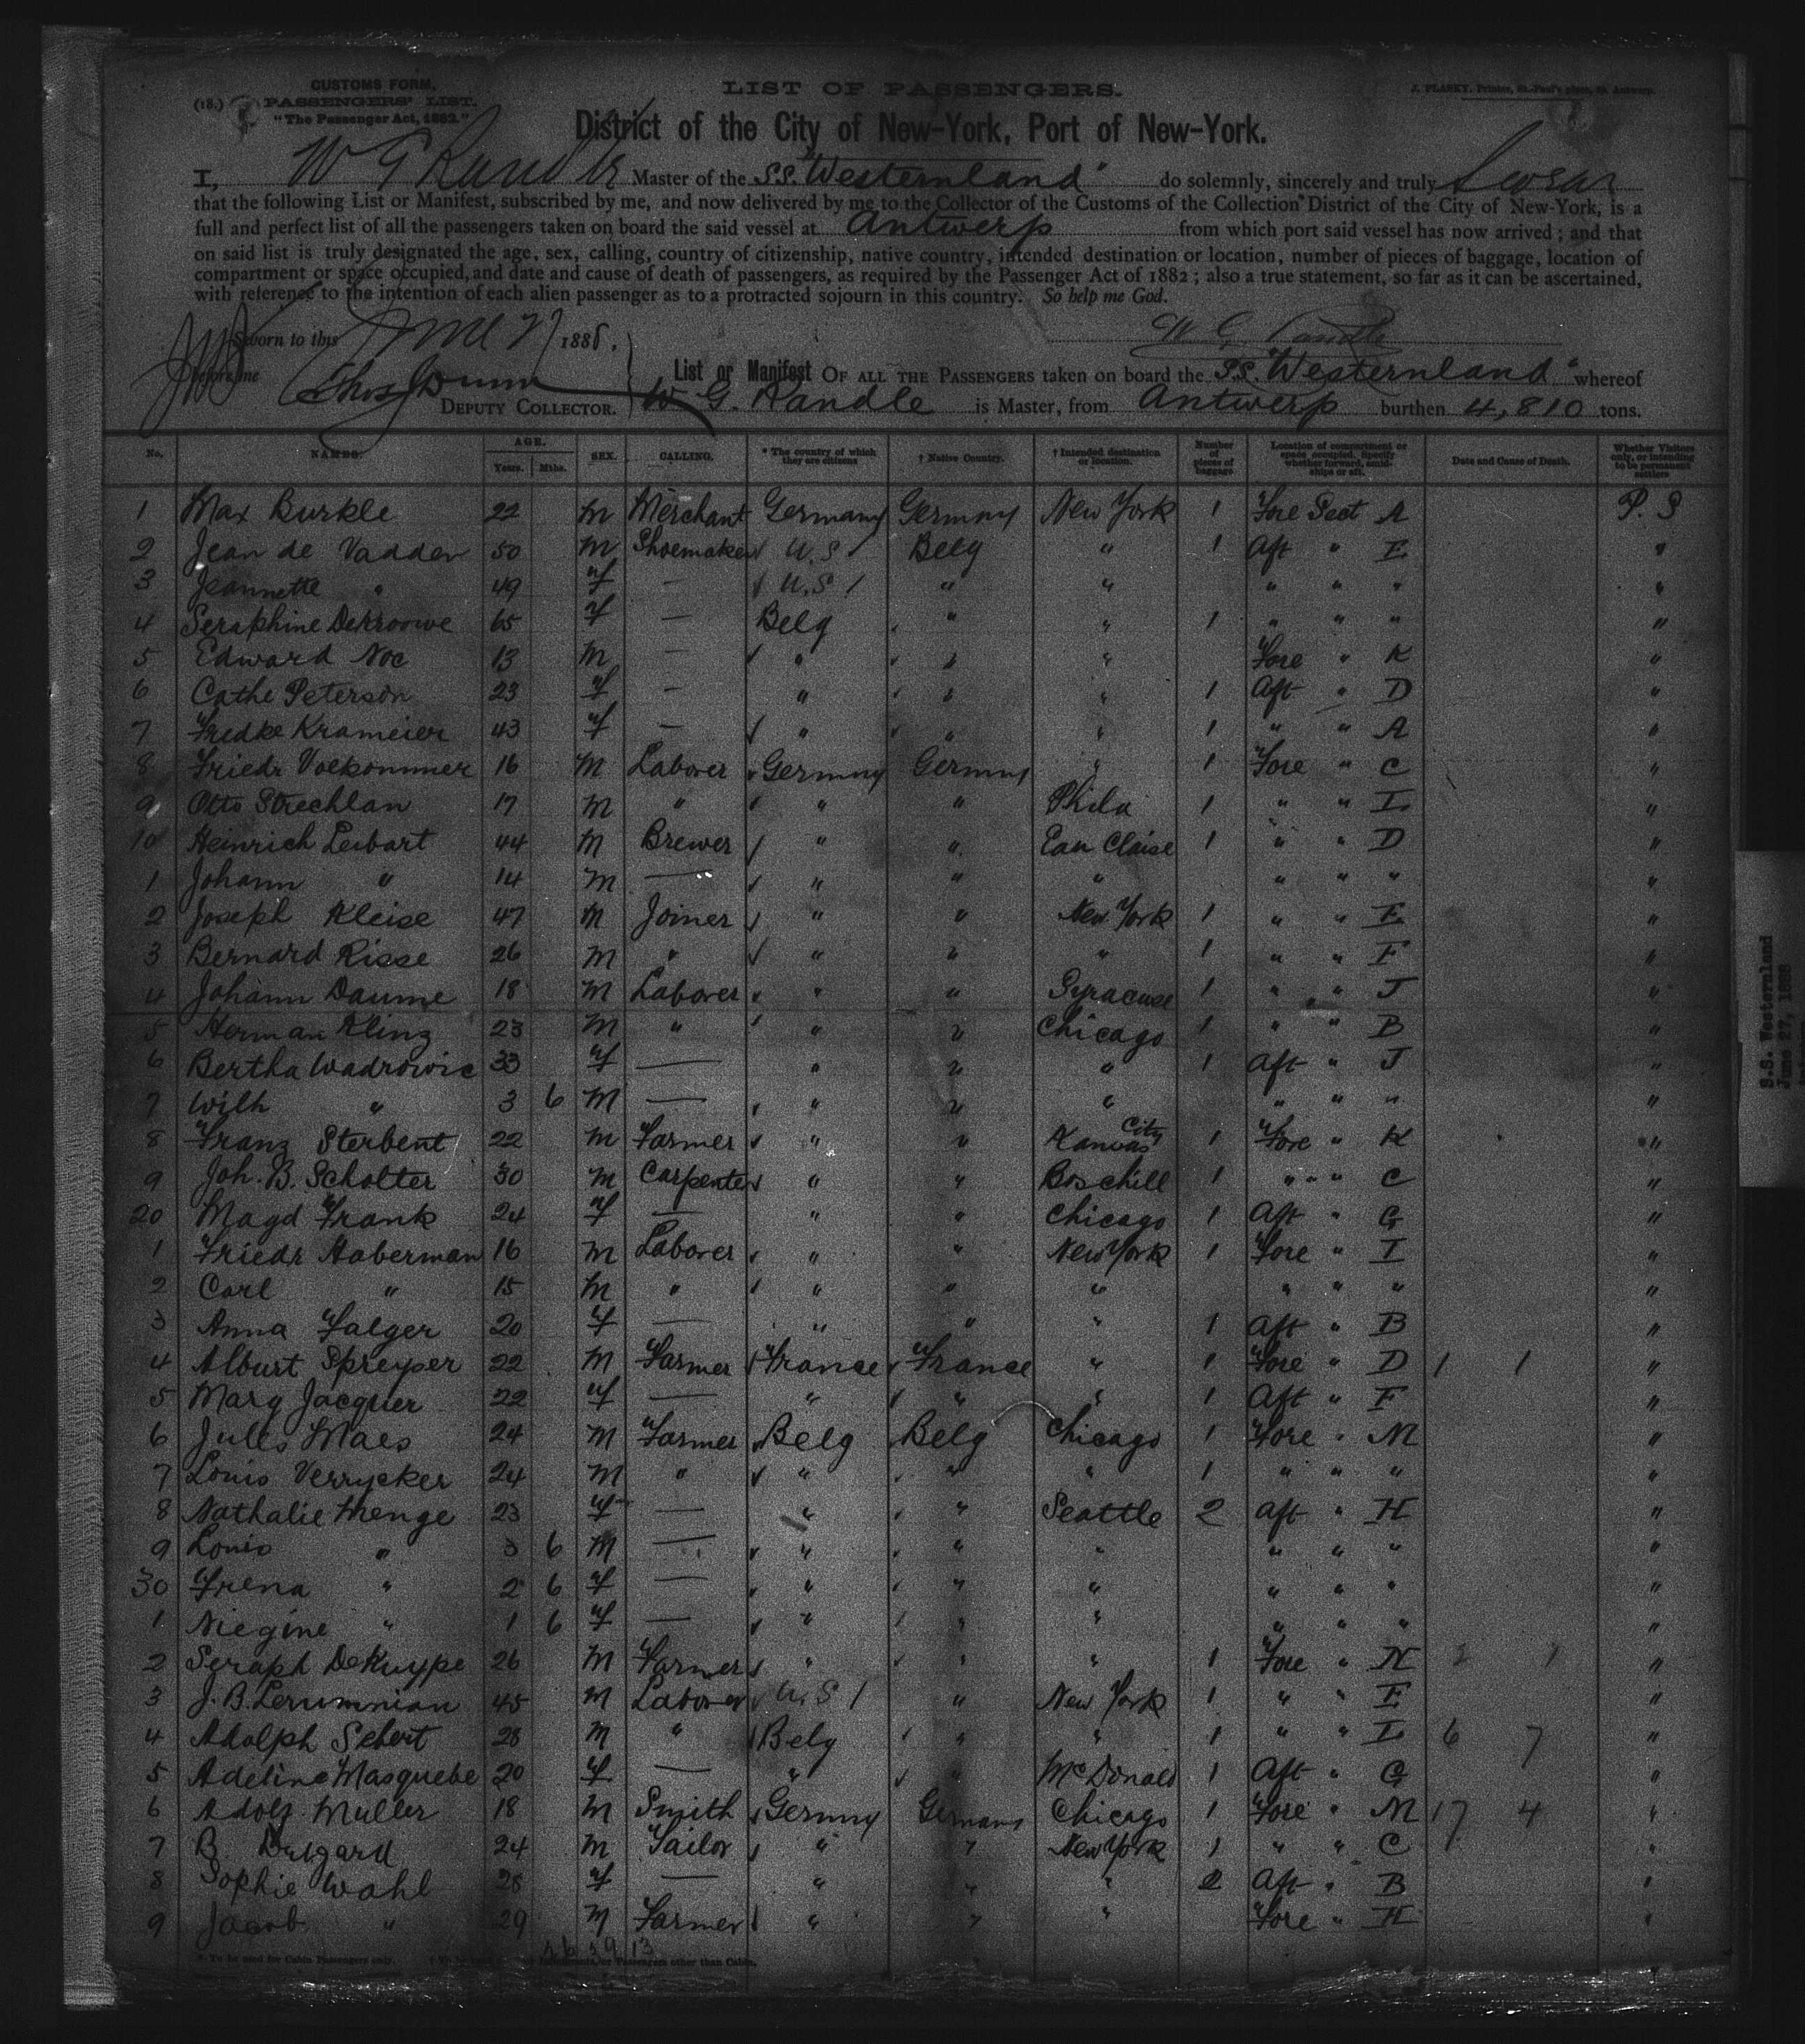 CUSTOMS FORM,
(18.) PASSENGERS' LIST.
"The Passenger Act, 1882."
LIST OF PASSENGERS.
J. PLASKY, Printer, St.-Paul's place, Antwerp.
District of the City of New-York, Port of New-York.
I, W G Randle Master of the SS. "Westernland" do solemnly, sincerely and truly Swear
that the following List or Manifest, subscribed by me, and now delivered by me to the Collector of the Customs of the Collection District of the City of New-York, is a
full and perfect list of all the passengers taken on board the said vessel at Antwerp from which port said vessel has now arrived; and that
on said list is truly designated the age, sex, calling, country of citizenship, native country, intended destination or location, number of pieces of baggage, location of
compartment or space occupied, and date and cause of death of passengers, as required by the Passenger Act of 1882; also a true statement, so far as it can be ascertained,
with reference to the intention of each alien passenger as to a protracted sojourn in this country. So help me God.
Sworn to this June 27 1888.
W. G. Randle
before me
List or Manifest OF ALL THE PASSENGERS taken on board the SS. "Westernland" whereof
DEPUTY COLLECTOR. W. G. Randle is Master, from Antwerp burthen 4,810 tons.
No. NAMES. AGE. Years. Mths. SEX. CALLING. * The country of which they are citizens † Native Country. † Intended destination or location. Number of pieces of baggage Location of compartment or space occupied. Specify whether forward, amidships or aft. Date and Cause of Death. Whether Visitors only, or intending to be permanent settlers
1 Max Burkle 22 m Merchant Germany Germny New York 1 Fore Sect A P. S
2 Jean de Vadder 50 m Shoemaker U.S Belg " 1 Aft " E "
3 Jeannette " 49 f — U.S " " " " " "
4 Seraphine 65 f — Belg " " 1 " " " "
5 Edward Noe 13 m — " " " Fore " K "
6 Cathe Peterson 23 f — " " " 1 Aft " D "
7 Fredke Krameier 43 f — " " " 1 " " A "
8 Friedr Volkommer 16 m Laborer Germny Germny " 1 Fore " C "
9 Otto Strechlan 17 m " " " Phila 1 " " L "
10 Heinrich Leibart 44 m Brewer " " Eau Claise 1 " " D "
1 Johann " 14 m — " " " " " " "
2 Joseph Kleise 47 m Joiner " " New York 1 " " E "
3 Bernard Risse 26 m " " " " 1 " " F "
4 Johann Daume 18 m Laborer " " Syracuse 1 " " J "
5 Herman Kling 23 m " " " Chicago 1 " " B "
6 Bertha Wadrowic 33 f — " " " 1 Aft " J "
7 Wilh " 3 6 m — " " " " " " "
8 Franz Sterbent 22 m Farmer " " Kansas City 1 Fore " K "
9 Joh. B. Scholter 30 m Carpenter " " Boschill 1 " " C "
20 Magd Frank 24 f — " " Chicago 1 Aft " G "
1 Friedr Haberman 16 m Laborer " " New York 1 Fore " I "
2 Carl " 15 m " " " " " " " "
3 Anna Falger 20 f — " " " 1 Aft " B "
4 Alburt Spreyser 22 m Farmer France France " 1 Fore " D 1 1 "
5 Mary Jacquier 22 f — " " " 1 Aft " F "
6 Jules Maes 24 m Farmer Belg Belg Chicago 1 Fore " M "
7 Louis Verrycker 24 m " " " " 1 " " " "
8 Nathalie Menge 23 f — " " Seattle 2 Aft " H "
9 Louis " 3 6 m — " " " " " " "
30 Irena " 2 6 f — " " " " " " "
1 Niegine " 1 6 f — " " " " " " "
2 Seraph DeKuype 26 m Farmer " " " 1 Fore " N 2 1 "
3 J. B. Lerumnian 45 m Laborer U.S " New York 1 " " E "
4 Adolph Sebert 28 m " Belg " " 1 " " L 6 7 "
5 Adeline Masquebe 20 f — " " McDonald 1 Aft " G "
6 Adolf Muller 18 m Smith Germny Germany Chicago 1 Fore " M 17 4 "
7 B. 24 m Tailor " " New York 1 " " C "
8 Sophie Wahl 28 f — " " " 2 Aft " B "
9 Jacob " 29 m Farmer " " " Fore " H "
* To be used for Cabin Passengers only. Passengers other than Cabin.
S.S. Westernland
June 27, 1888